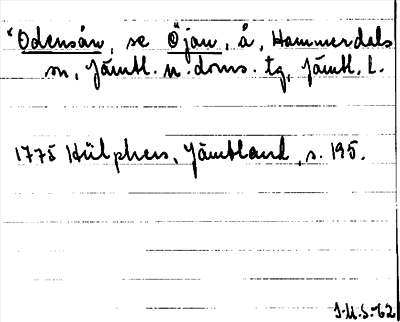 "Odensån, se Öjan, å, Hammerdals
sn, Jämtl. n. doms. tg, Jämtl. l.
1775 Hülphers, Jämtland, s. 195.
J.M.S.-62